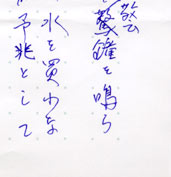 警鐘を鳴ら
水を買わな
予兆として